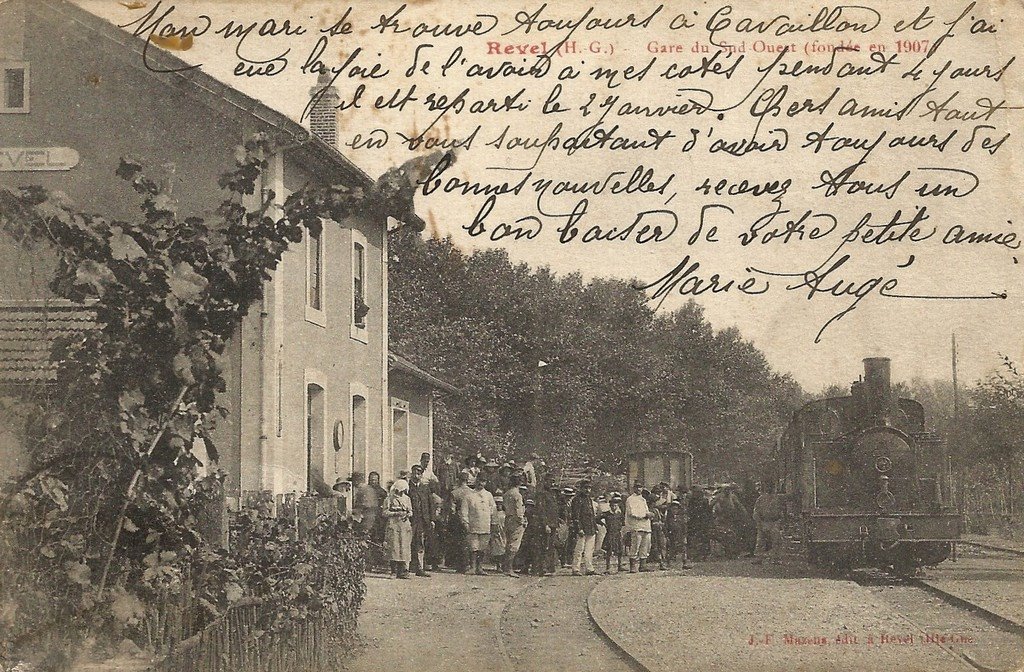 Mon mari se trouve toujours à Cavaillon et j'ai
Revel (H. G.) - Gare du Sud-Ouest (fondée en 1907)
eue la joie de l'avoir à mes cotés pendant 4 jours
il est reparti le 2 Janvier. Chers amis tout
en vous souhaitant d'avoir toujours des
bonnes nouvelles, recevez tous un
bon baiser de votre petite amie.
Marie Augé
EVEL
J. F. Mazens, édit. à Revel (Hte-Gne